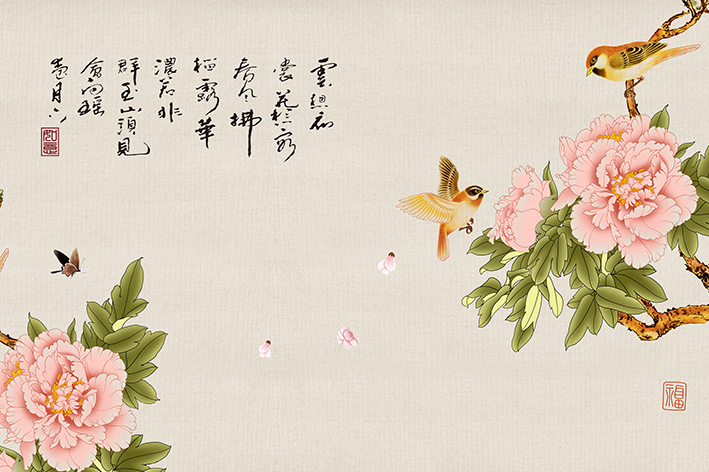 雲想衣
裳花想容
春风拂
檻露華
濃若非
群玉山頭見
會向瑶
臺月下
福